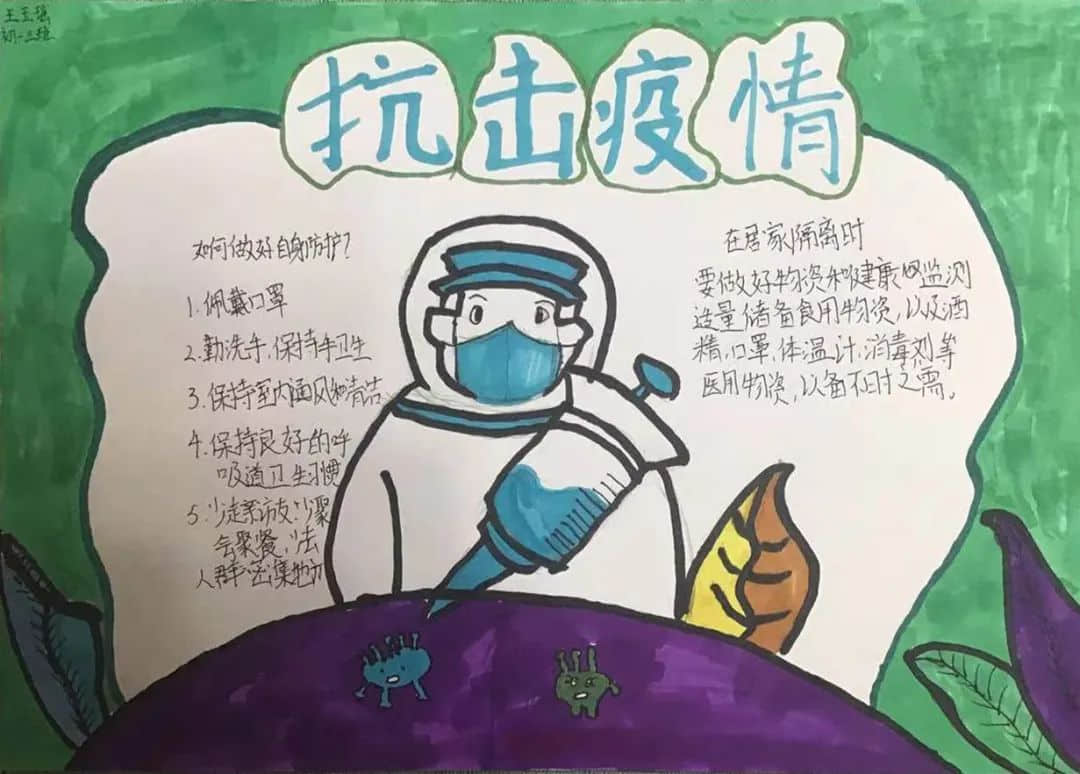 王玉瑶
初一三班
抗击疫情
如何做好自身防护?
1.佩戴口罩
2.勤洗手,保持手卫生
3.保持室内通风和清洁
4.保持良好的呼
吸道卫生习惯
5.少走亲访友,少聚
会聚餐,少去
人群密集地方
在居家隔离时
要做好物资和健康的监测
适量储备食用物资,以及酒
精,口罩,体温计,消毒剂等
医用物资,以备不时之需。